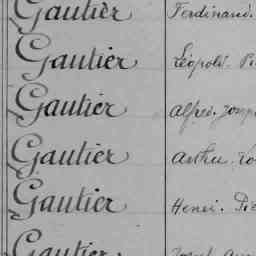 Gautier Ferdinand.
Gautier Léopold. Pi
Gautier Alfred. Josep
Gautier Arthur. Lo
Gautier Henri. Pie
Gautier